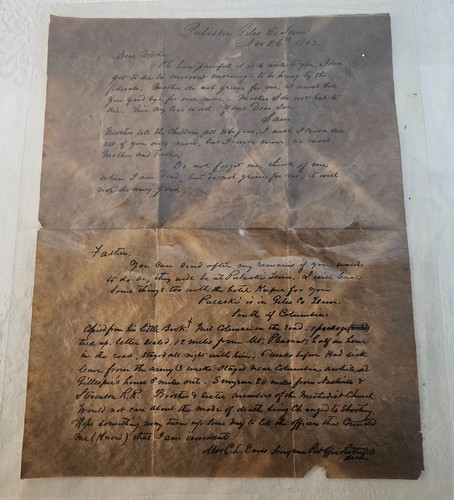 Pulaski Giles Co Tenn
Nov 26th 1863
Dear Mother
Oh how painful it is to write to you. I have
got to die to morrow morning - to be hung by the
federals. Mother do not grieve for me. I must bid
you good bye for ever more. Mother I do not hate to
die. Give my love to all. Your Dear Son
Sam
Mother tell the children all to be good, I wish I could see
all of you once more, but I never never no more
Mother and Father
Do not forget me, think of me
when I am dead, but do not grieve for me, it will
not do any good
Father,
You can send after my remains if you want
to do so, they will be at Pulaski Tenn. I will leave
some things too with the hotel Keeper for you
Pulaski is in Giles Co Tenn.
South of Columbia.
Copied from his little Book. Met Coleman in the road. 1 package
tied up, letter sealed, 12 miles from Mt. Pleasant, half an hour
in the road, stayed all night with him, 6 weeks before Had sick
leave from the army 3 weeks stayed near Columbia awhile at
Gillespie's house 8 miles out. Smyrna 20 miles from Nashville &
R.R. Brother & sister members of the Methodist Church
Would not care about the mode of death being changed to Shooting
Hope something may turn up some day to let the officer that
Me (Know) that I am innocent
Mrs C. L. Davis Smyrna Post Office